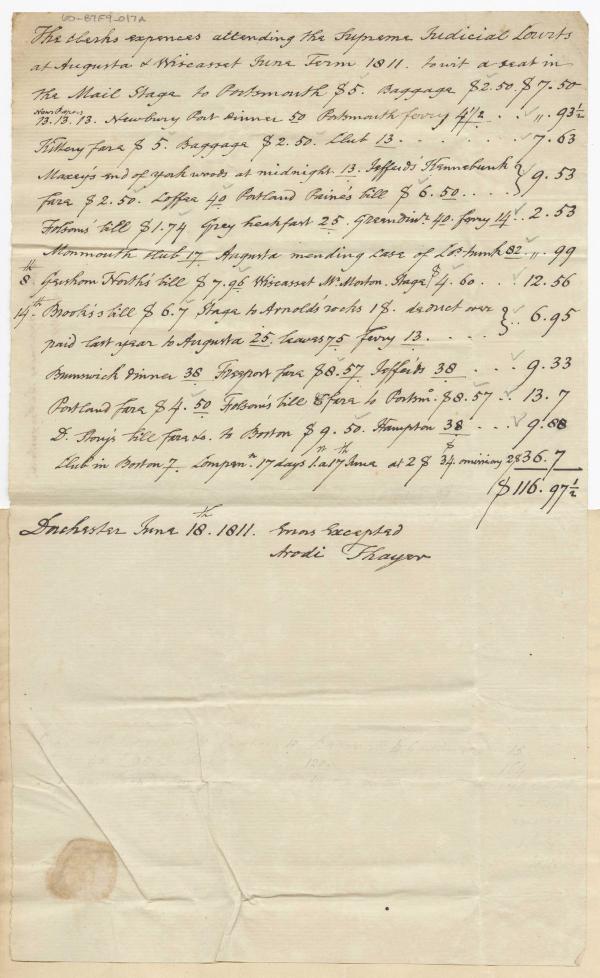 60-87F9-017A
The clerks expences attending the Supreme Judicial Courts
at Augusta & Wiscasset June Term 1811. to wit a seat in
the Mail Stage to Portsmouth $5. Baggage $2.50. $7.50
13. 13. 13. Newbury Port dinner 50 Portsmouth ferry 4 1/2 . . " . 93 1/2
Kittery fare $5. Baggage $2.50. Club 13 . . . . . . . 7.63
Macey's end of york woods at midnight. 13. Jefferds Kennebunk } 9.53
fare $2.50. Coffee 40 Portland Paine's bill $6.50 . . . .
Folsom's bill $1.74 Grey breakfast 25. Greendinr. 40. ferry 14 . 2.53
Monmouth club 17 Augusta mending case of trunk 82 . " . 99
8th Gershom North's bill $7.96 Wiscasset Mr. Morton. Stage $4.60 . . . 12.56
14th Brooks's bill $6.7 Stage to Arnold's rocks 18. deduct over } . . 6.95
paid last year to Augusta 25. leaves 75 ferry 13 . . . . .
Brunswick dinner 38 Freeport fare $8.57 Jefferds 38 . . . 9.33
Portland fare $4.50 Folsom's bill & fare to Portsmo. $8.57 . . 13.7
D. bill fare &c. to Boston $9.50. Hampton 38 . . . 9.88
Club in Boston 7. Compenn. 17 days 1. a 17th June at 2 $ $34. 36.7
$116.97 1/2
Dorchester June 18th. 1811. Errors Excepted
Arodi Thayer